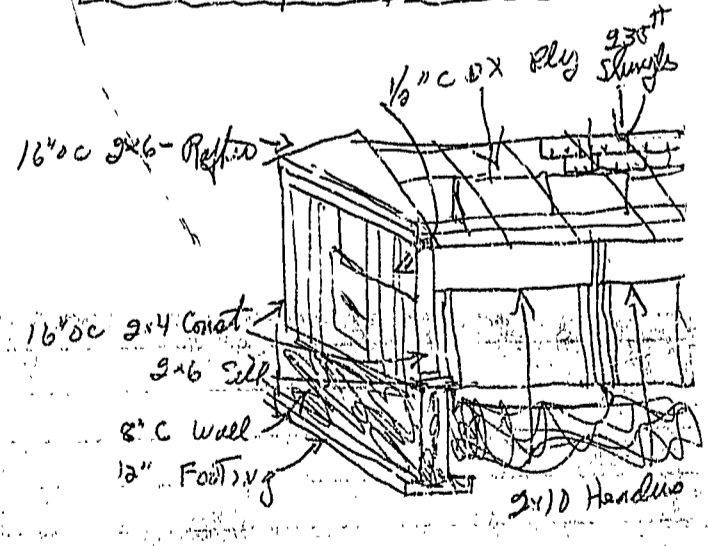 1/2" C DX Ply
235#
Shingls
16" oc 2x6 - Rafters
16" oc 2x4 Const
2x6 Sill
8" C Wall
12" Footing
2x10 Headers